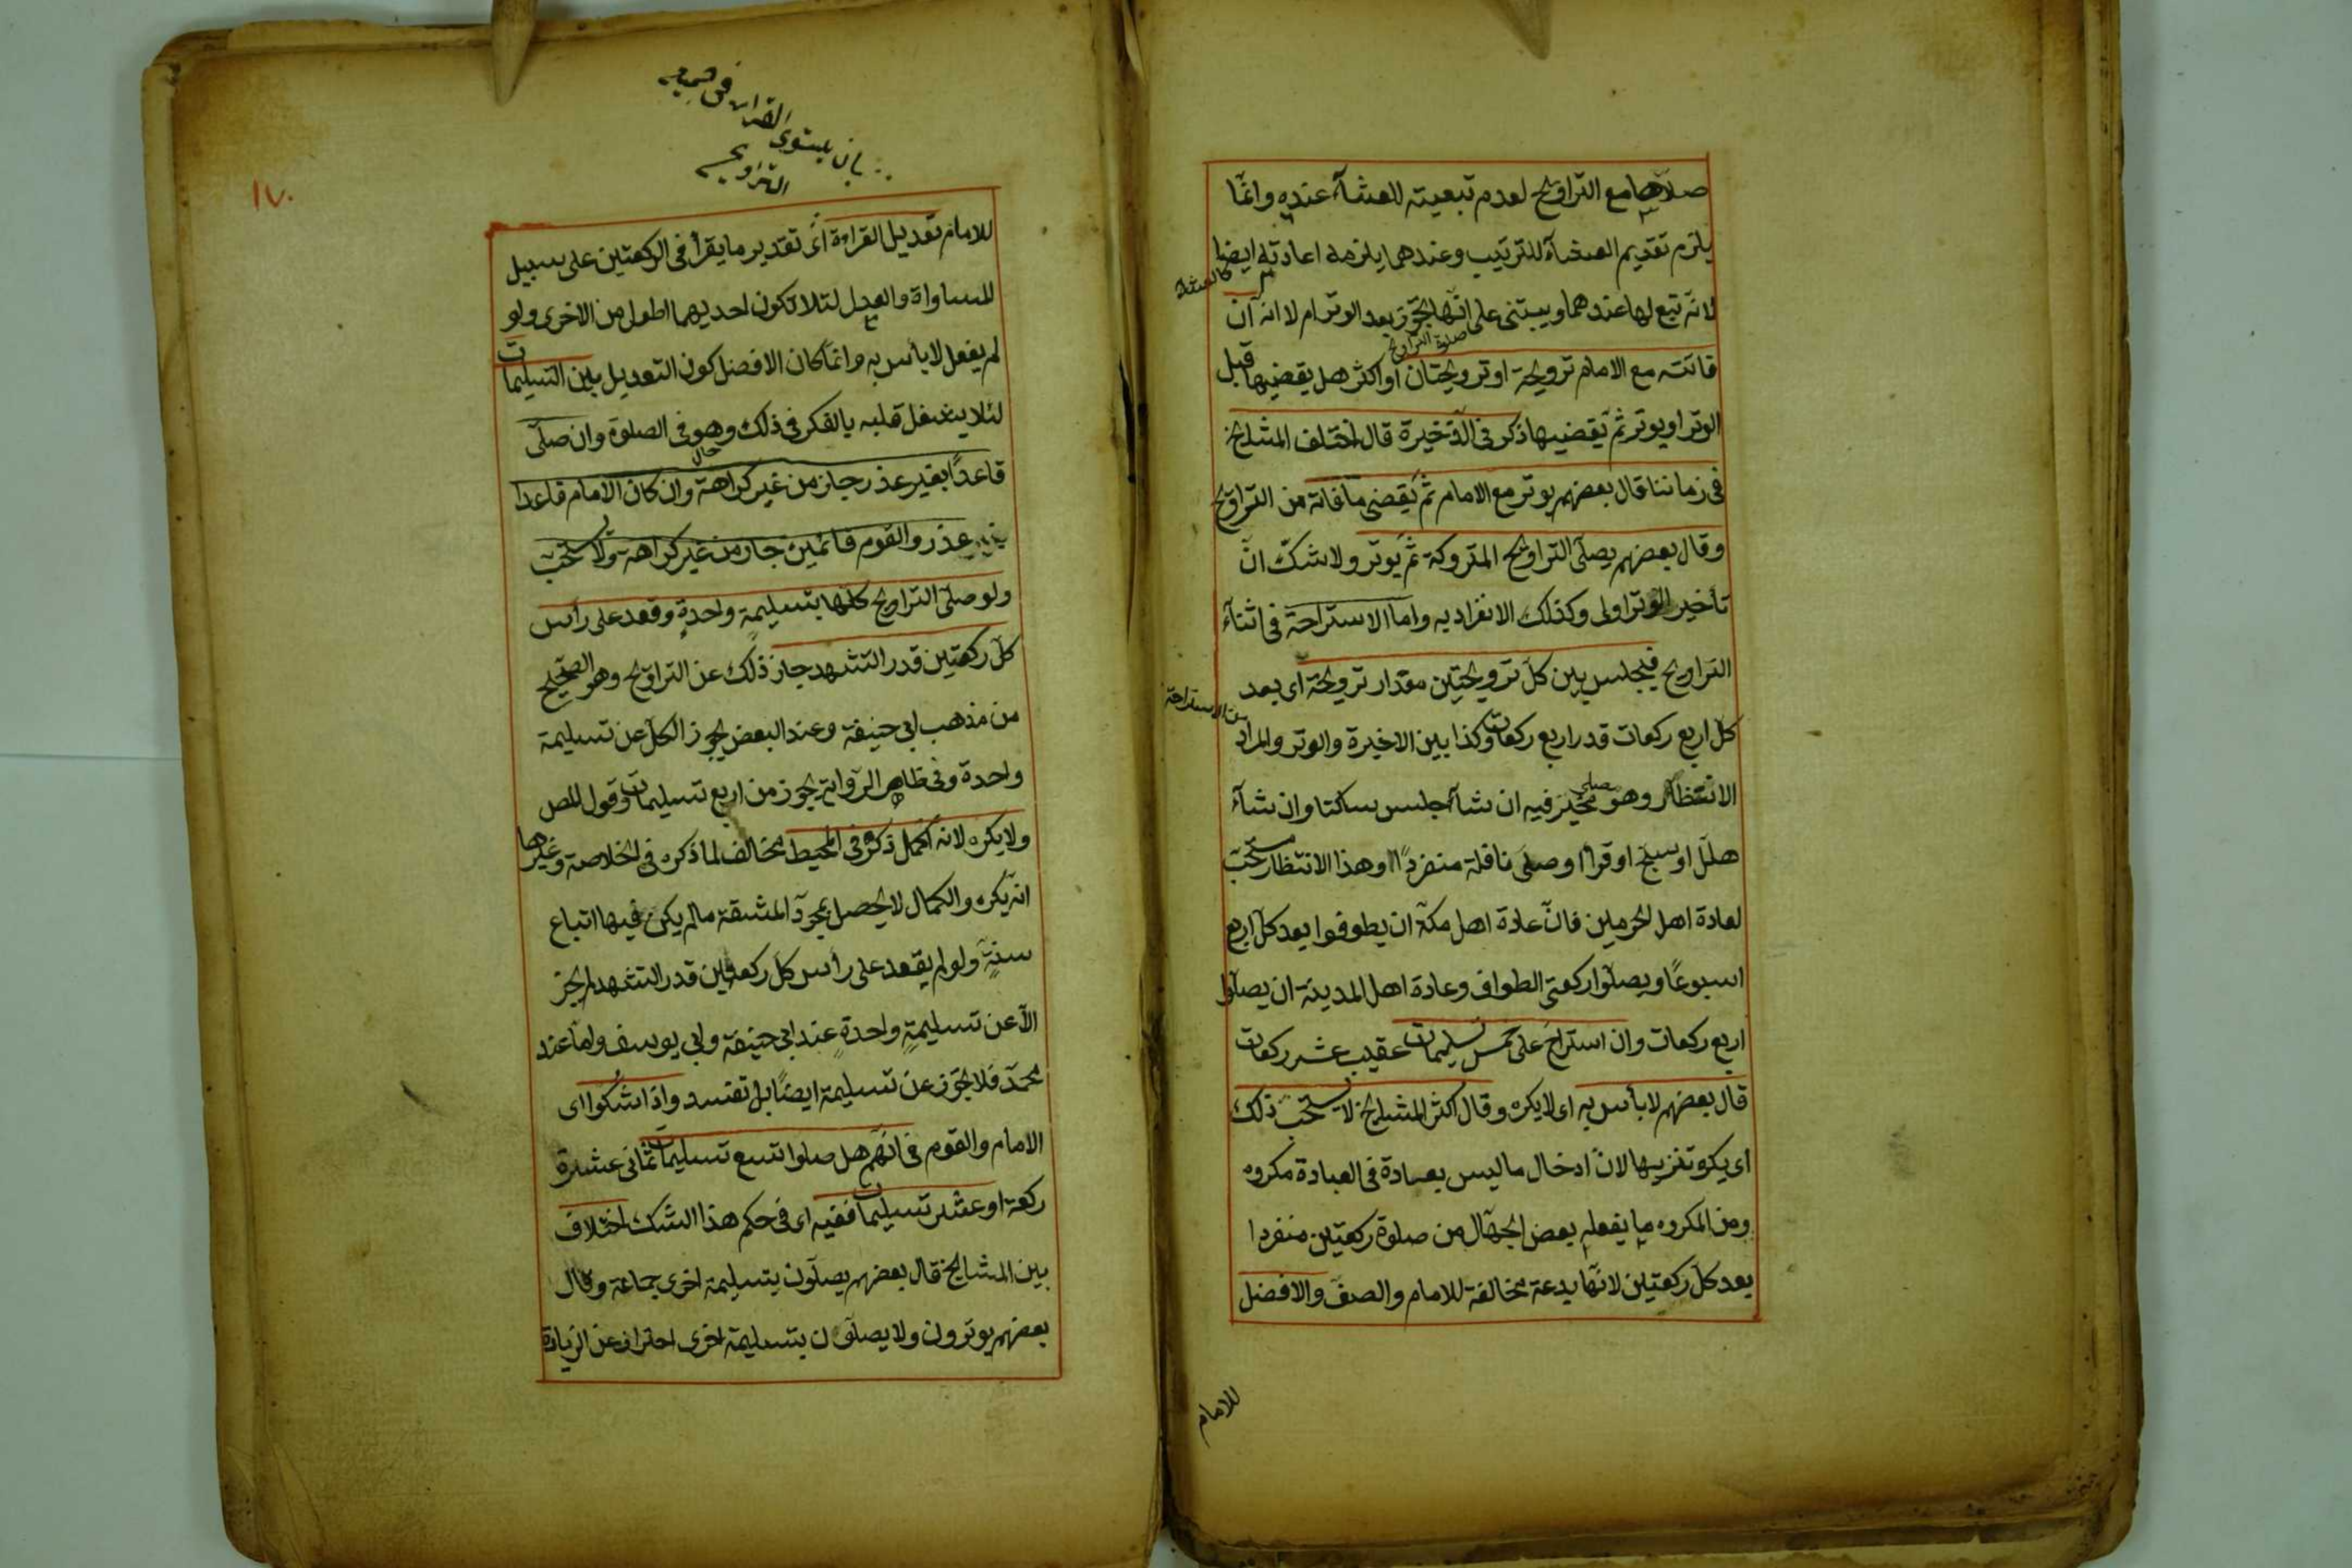 صلاها مع التراويح لعدم تبعيته للعشآء عنده وانما
يلزم تقديم العشآء للترتيب وعندهما يلزمه اعادته ايضا
كالعشاء
لانه تبع لها عندهما ويبتنى على انها تجوز بعد الوتر ام لا انه ان
صلوة التراويح
فاتته مع الامام ترويحة او ترويحتان او اكثر هل يقضيها قبل
الوتر او يوتر ثم يقضيها ذكر فى الذخيرة قال اختلف المشايخ
فى زماننا قال بعضهم يوتر مع الامام ثم يقضى ما فاته من التراويح
وقال بعضهم يصلى التراويح المتروكة ثم يوتر ولا شك ان
تأخير الوتر اولى وكذلك الانفراد به واما الاستراحة فى اثنآء
التراويح فيجلس بين كل ترويحتين مقدار ترويحة اى بعد
كل اربع ركعات قدر اربع ركعات وكذا بين الاخيرة والوتر والمراد
من الاستراحة
الانتظار وهو مخير فيه ان شآء جلس ساكتا وان شآء
هلل او سبح او قرأ او صلى نافلة منفردًا وهذا الانتظار مستحب
لعادة اهل الحرمين فان عادة اهل مكة ان يطوفوا بعد كل اربع
اسبوعًا ويصلوا ركعتى الطواف وعادة اهل المدينة ان يصلوا
اربع ركعات وان استراح على خمس تسليمات عقيب عشر ركعات
قال بعضهم لا بأس به اى لا يكره وقال اكثر المشايخ لا يستحب ذلك
اى يكره تنزيها لان ادخال ما ليس بعبادة فى العبادة مكروه
ومن المكروه ما يفعله بعض الجهال من صلوة ركعتين منفردا
بعد كل ركعتين لانها بدعة مخالفة للامام والصف والافضل
للامام
١٧٠
بان يستوى القراءة فى جميع
التراويح
للامام تعديل القراءة اى تقدير ما يقرأ فى الركعتين على سبيل
المساواة والعدل لئلا تكون احديهما اطول من الاخرى ولو
لم يفعل لا بأس به وانما كان الافضل كون التعديل بين التسليمات
لئلا يشغل قلبه بالفكر فى ذلك وهو فى الصلوة وان صلى
حال
قاعدًا بغير عذر جاز من غير كراهة وان كان الامام قاعدا
عذر والقوم قائمين جاز من غير كراهة ولا يستحب
ولو صلى التراويح كلها بتسليمة واحدة وقعد على رأس
كل ركعتين قدر التشهد جاز ذلك عن التراويح وهو الصحيح
من مذهب ابى حنيفة وعند البعض يجوز الكل عن تسليمة
واحدة وفى ظاهر الرواية يجوز من اربع تسليمات وقول المص
ولا يكره لانه اكمل ذكره فى المحيط مخالف لما ذكره فى الخلاصة وغيرها
انه يكره والكمال لا يحصل بمجرد المشقة ما لم يكن فيها اتباع
سنة ولو لم يقعد على رأس كل ركعتين قدر التشهد لم يجز
الا عن تسليمة واحدة عند ابى حنيفة وابى يوسف واما عند
محمد فلا يجوز عن تسليمة ايضًا بل تفسد واذا شكوا اى
الامام والقوم فى انهم هل صلوا تسع تسليمات ثمانى عشرة
ركعة او عشر تسليمات ففيه اى فى حكم هذا الشك اختلاف
بين المشايخ قال بعضهم يصلون بتسليمة اخرى جماعة وقال
بعضهم يوترون ولا يصلون بتسليمة اخرى احترازا عن الزيادة